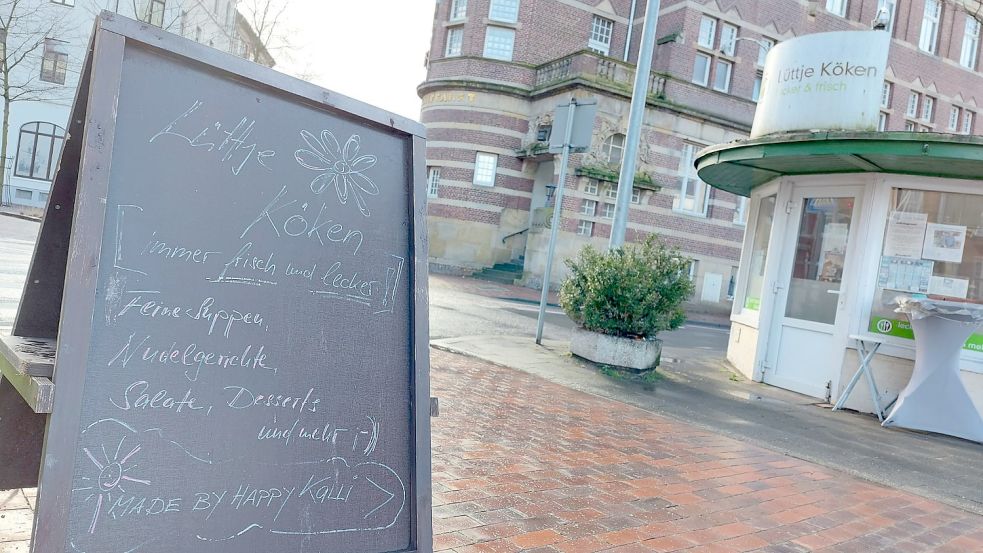 Lüttje
Köken
[immer frisch und lecker!]
Feine Suppen,
Nudelgerichte,
Salate, Desserts
und mehr ;-))
MADE BY HAPPY Kalli
Lüttje Köken
lecker & frisch